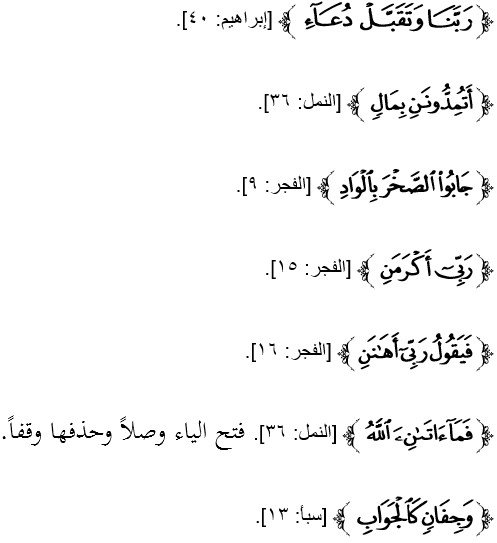 ﴿ رَبَّنَا وَتَقَبَّلْ دُعَآءِ ﴾ [إبراهيم: ٤٠].
﴿ أَتُمِدُّونَنِ بِمَالٍ ﴾ [النمل: ٣٦].
﴿ جَابُوا۟ ٱلصَّخْرَ بِٱلْوَادِ ﴾ [الفجر: ٩].
﴿ رَبِّىٓ أَكْرَمَنِ ﴾ [الفجر: ١٥].
﴿ فَيَقُولُ رَبِّىٓ أَهَٰنَنِ ﴾ [الفجر: ١٦].
﴿ فَمَآ ءَاتَىٰنِۦَ ٱللَّهُ ﴾ [النمل: ٣٦]. فتح الياء وصلاً وحذفها وقفاً.
﴿ وَجِفَانٍ كَٱلْجَوَابِ ﴾ [سبأ: ١٣].